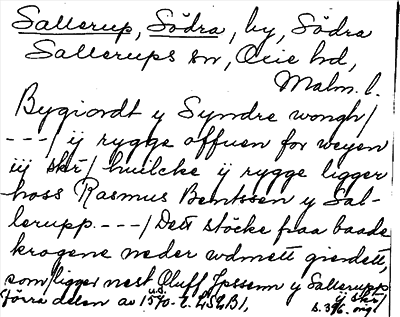 Sallerup, Södra, by, Södra
Sallerups sn, Oxie hd,
Malm. l.
Bygiordt y Syndre wongh/
---/ ij rygge offuen for weyen
iij skr/ huilcke ij rygge ligger
hoss Rasmus Bentssen y Sal-
lerupp ---/ Dett støcke fraa baade
krogene neder wdmett gierdett,
som ligger nest Oluff Jpssenn y Sallerupp
ij skr/
Förra delen av 1570-t. LSLB1,
s. 396. orig